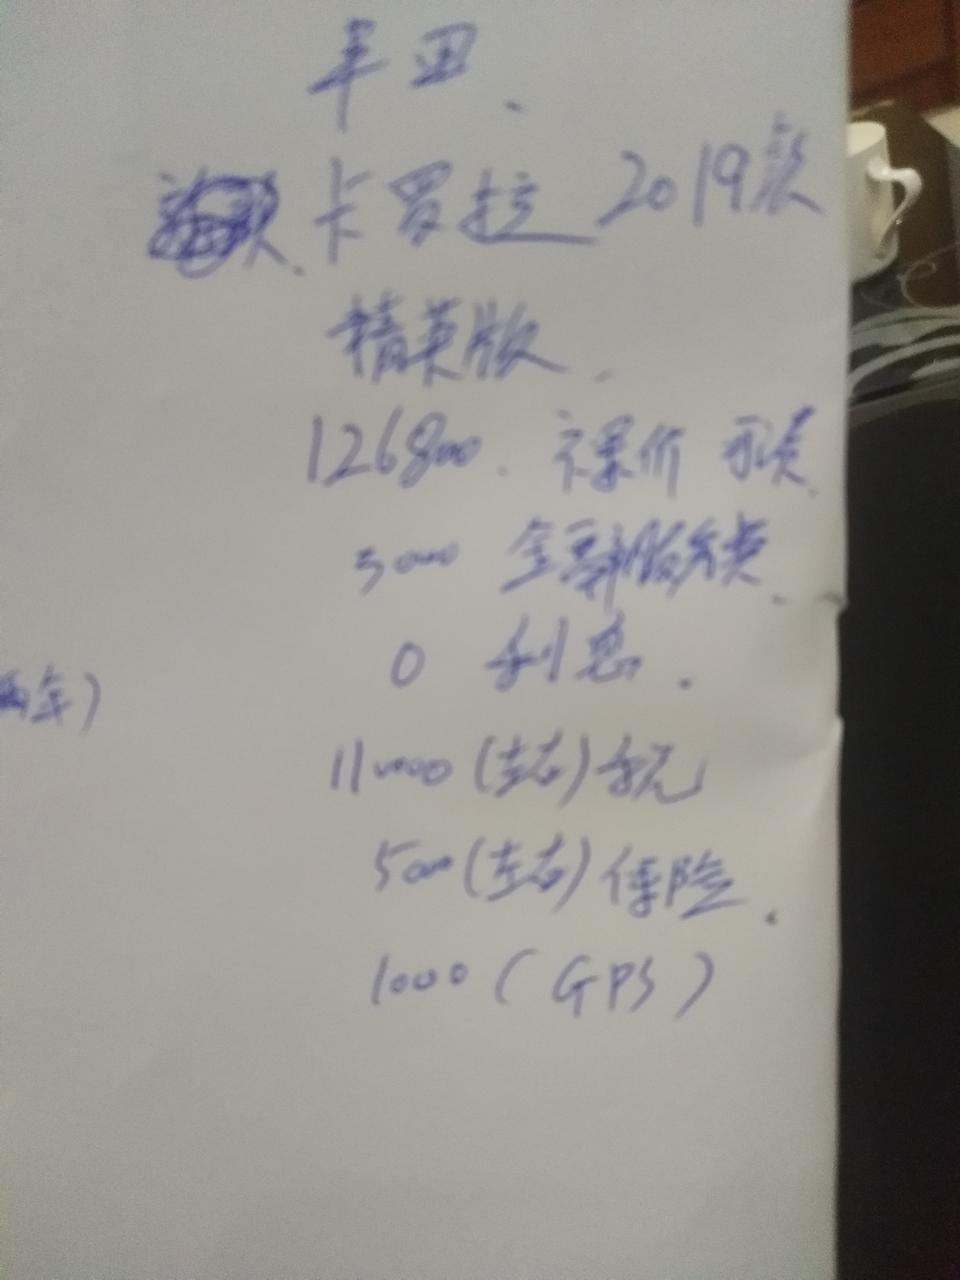 丰田、
卡罗拉 2019款
精英版.
126800. 裸价
3000 全部服务费.
0 利息.
两年)
11000 (左右)
5000 (左右) 保险.
1000 (GPS)